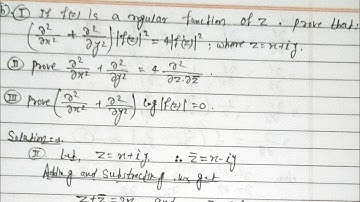 b) I If f(z) is a regular function of z. prove that:
(∂²/∂x² + ∂²/∂y²) |f(z)|² = 4|f'(z)|² ; where z = x+iy.
II prove ∂²/∂x² + ∂²/∂y² = 4 ∂²/∂z.∂z̄
III Prove (∂²/∂x² + ∂²/∂y²) log|f(z)| = 0.
Solution →
II Let, z = x+iy ∴ z̄ = x-iy
Adding and Substracting we get
z+z̄ = 2x and